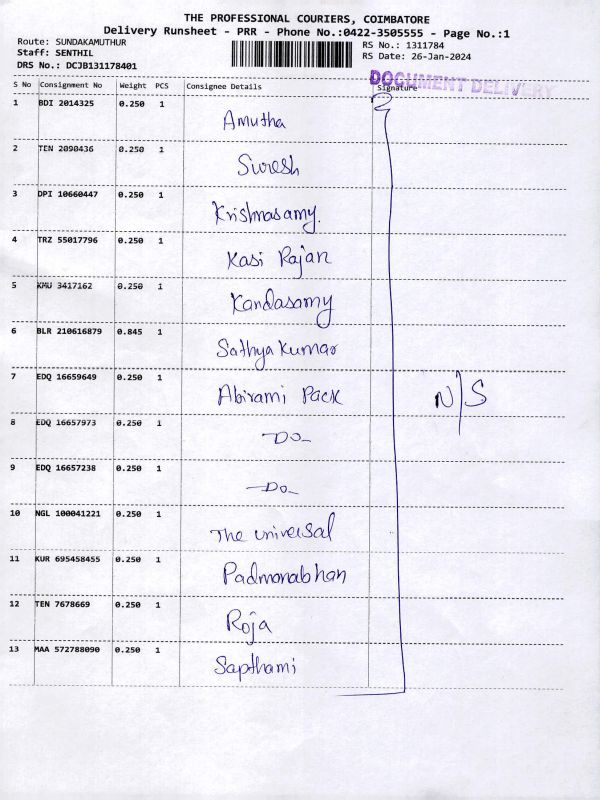 THE PROFESSIONAL COURIERS, COIMBATORE
Delivery Runsheet - PRR - Phone No.:0422-3505555 - Page No.:1
Route: SUNDAKAMUTHUR
RS No.: 1311784
Staff: SENTHIL
RS Date: 26-Jan-2024
DRS No.: DCJB131178401
DOCUMENT DELIVERY
S No Consignment No Weight PCS Consignee Details Signature
1 BDI 2014325 0.250 1 Amutha
2 TEN 2090436 0.250 1 Suresh
3 DPI 10660447 0.250 1 Krishnasamy.
4 TRZ 55017796 0.250 1 Kasi Rajan
5 KMU 3417162 0.250 1 Kandasamy
6 BLR 210616879 0.845 1 Sathya Kumar
7 EDQ 16659649 0.250 1 Abirami Pack N/S
8 EDQ 16657973 0.250 1 -DO-
9 EDQ 16657238 0.250 1 -DO-
10 NGL 100041221 0.250 1 The universal
11 KUR 695458455 0.250 1 Padmanabhan
12 TEN 7678669 0.250 1 Roja
13 MAA 572788090 0.250 1 Sapthami